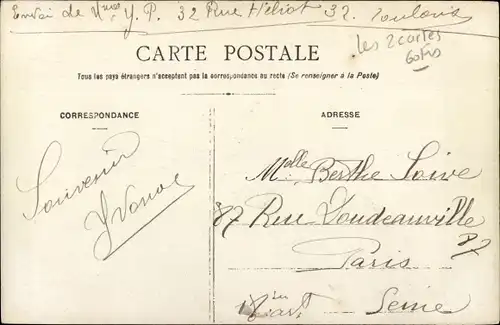 Envoi de Mme Y. P. 32 Rue Héliot 32. Toulouse
les 2 cartes
60 Frs
CARTE POSTALE
Tous les pays étrangers n'acceptent pas la correspondance au recto (Se renseigner à la Poste)
CORRESPONDANCE
ADRESSE
Souvenir
Yvonne
Melle Berthe Loire
27 Rue Doudeauville
27
Paris
Seine